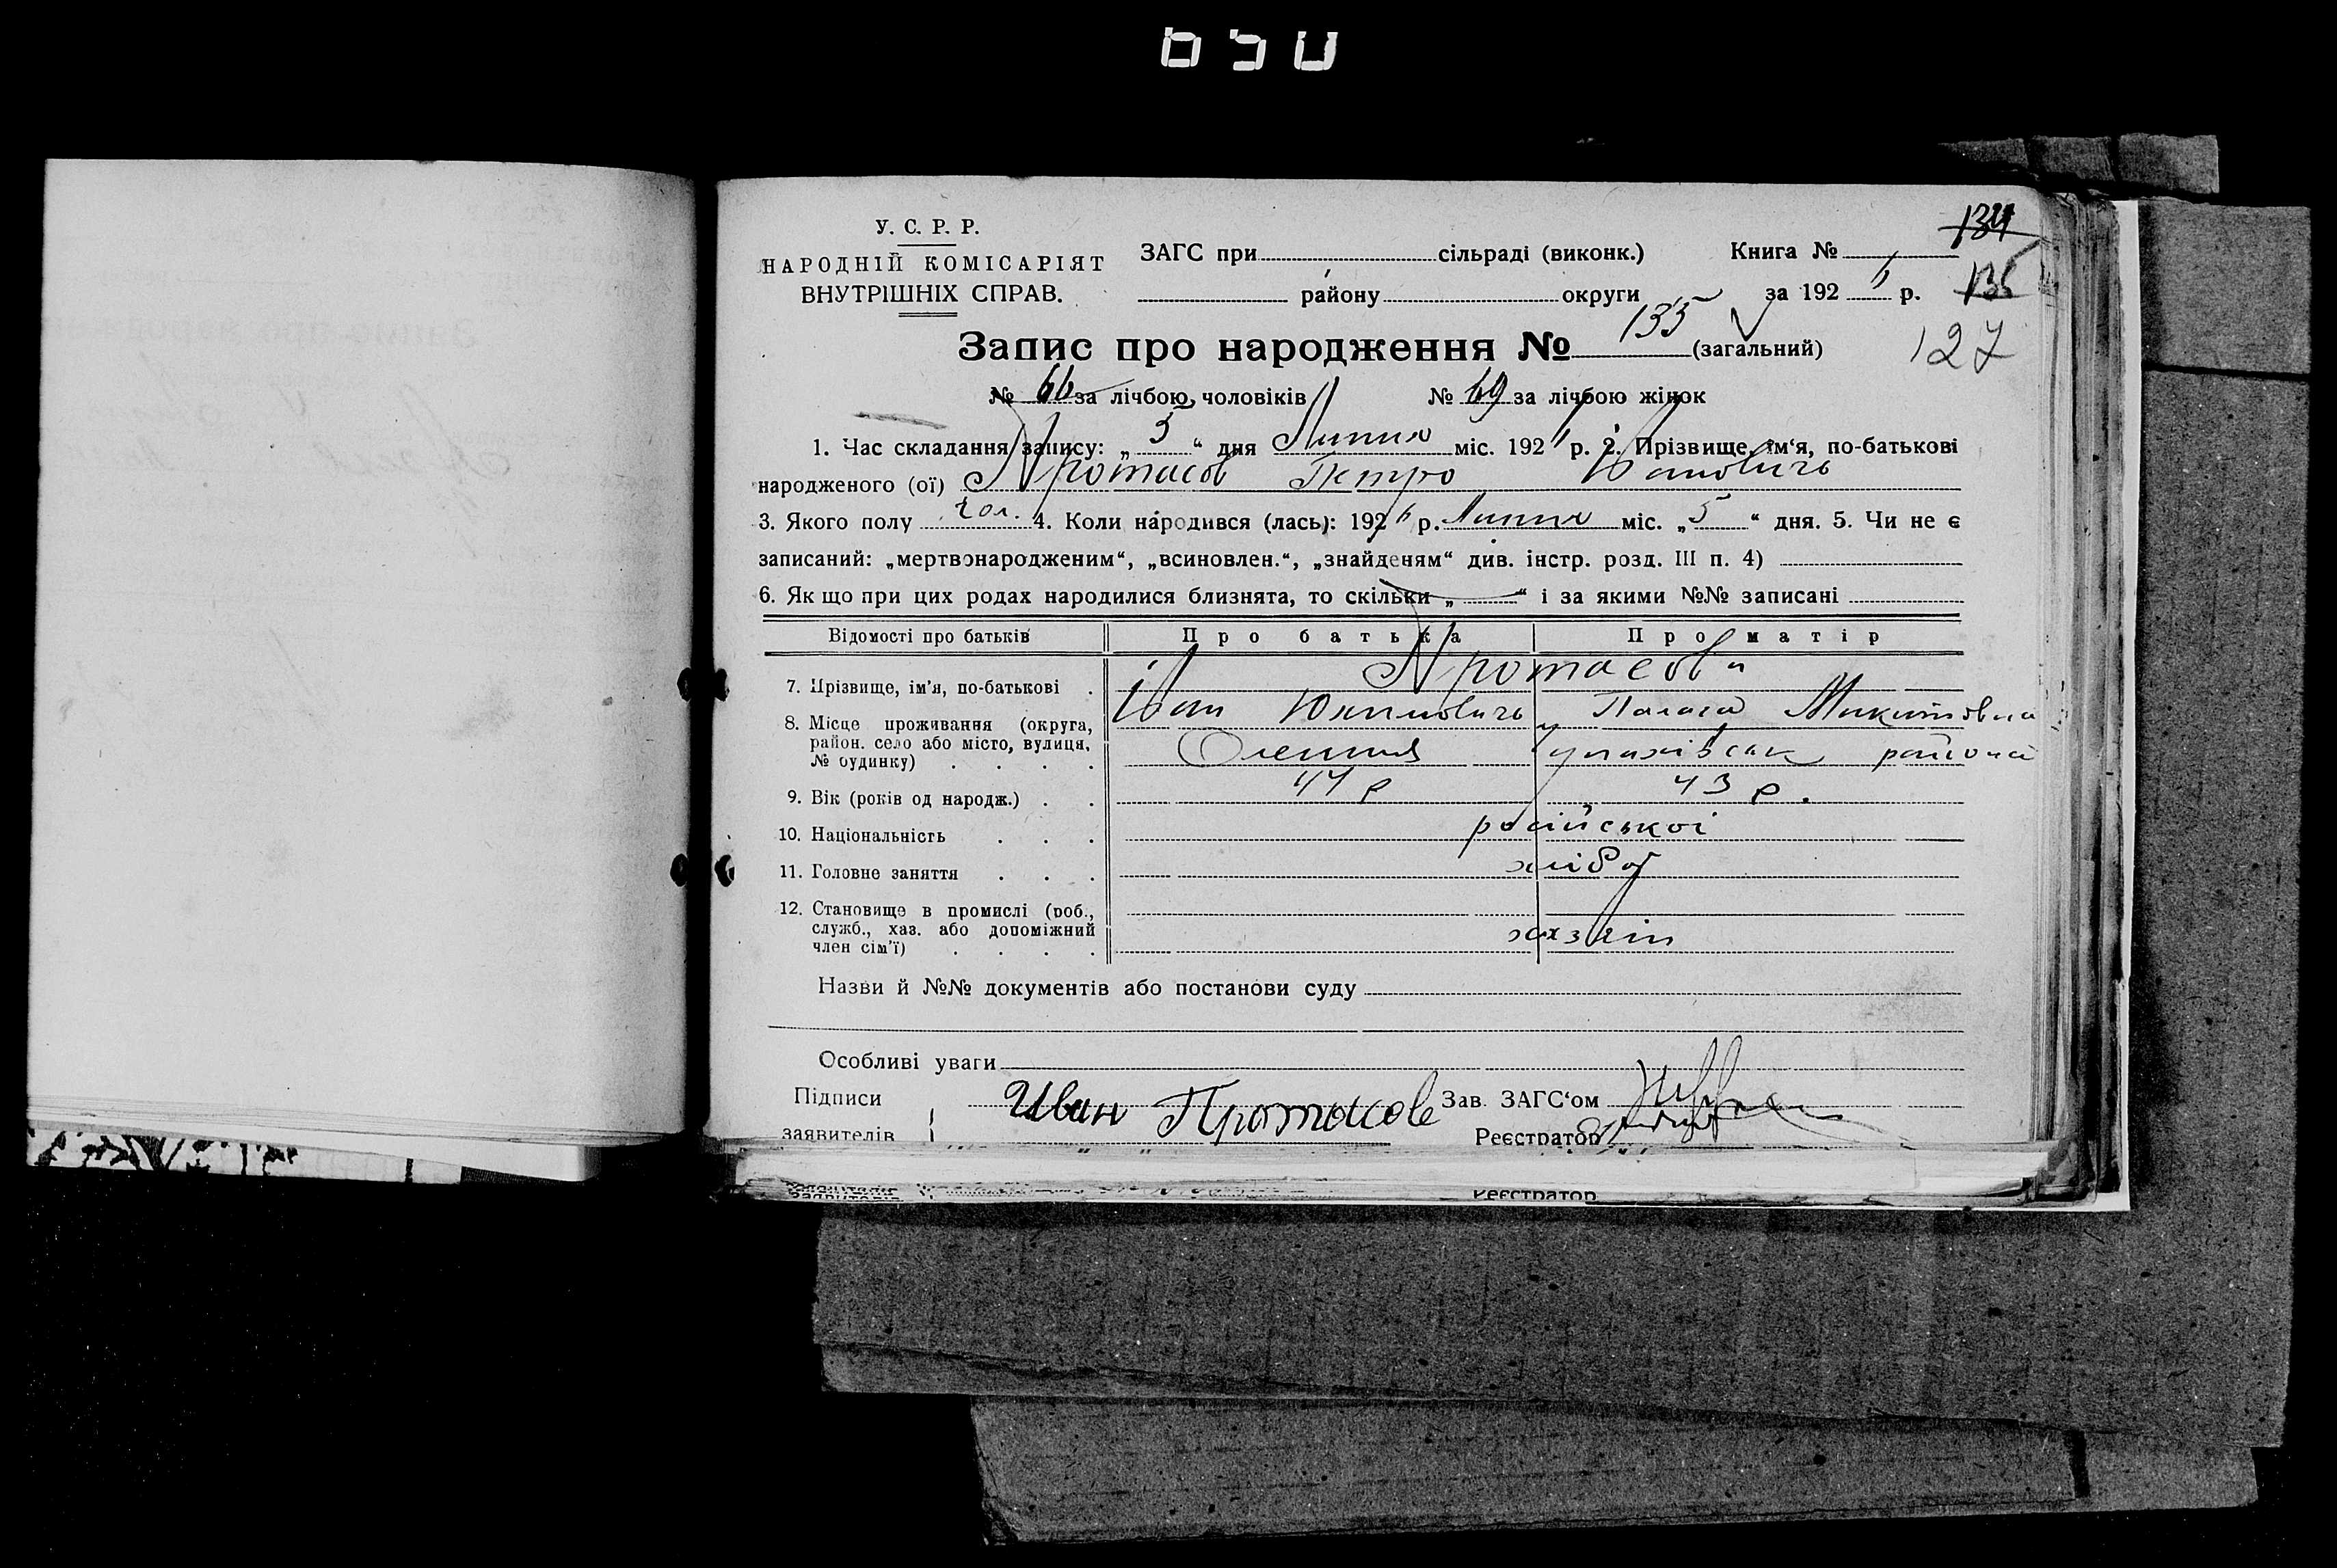 У. С. Р. Р.
НАРОДНІЙ КОМІСАРІЯТ
ВНУТРІШНІХ СПРАВ.
ЗАГС при сільраді (виконк.) Книга №
району округи за 192 р.
134
135
127
Запис про народження № 135 (загальний)
№ 66 за лічбою чоловіків № 69 за лічбою жінок
1. Час складання запису: „ 5 “ дня Липня міс. 192 р. 2. Прізвище, ім‘я, по-батькові
народженого (ої) Протасов Петро Іванович
3. Якого полу чол. 4. Коли народився (лась): 192 р. Липня міс. „ 5 “ дня. 5. Чи не є
записаний: „мертвонародженим“, „всиновлен.“, „знайденям“ див. інстр. розд. III п. 4)
6. Як що при цих родах народилися близнята, то скільки „ “ і за якими №№ записані
Відомості про батьків Про батька Про матір
7. Прізвище, ім'я, по-батькові Протасови
Іван Палага Микитовна
8. Місце проживання (округа,
район. село або місто, вулиця,
№ будинку) району
9. Вік (років од народж.) 44 р 43 р.
10. Національність російської
11. Головне заняття хліб
12. Становище в промислі (роб.,
служб., хаз. або допоміжний
член сім'ї)
Назви й №№ документів або постанови суду
Особливі уваги
Підписи Иван Протасов Зав. ЗАГС‘ом
заявителів Реєстратор
Реєстратор